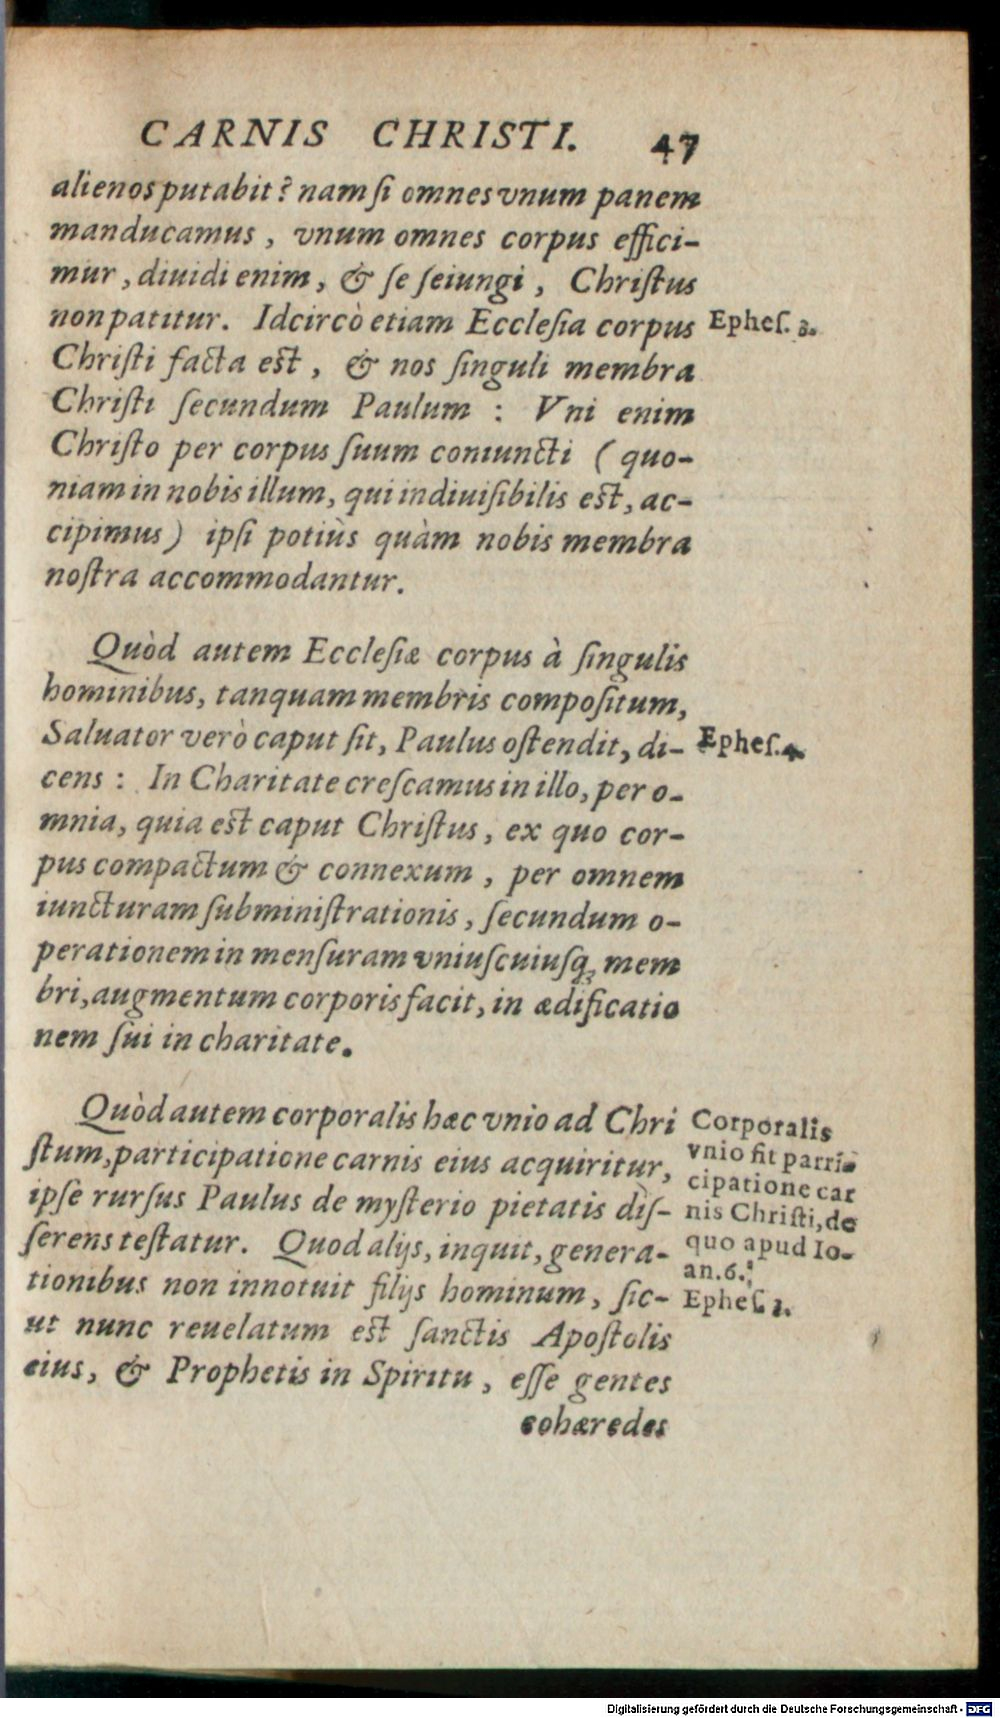 CARNIS CHRISTI. 47
alienos putabit? nam ſi omnes vnum panem
manducamus, vnum omnes corpus effici-
mur, diuidi enim, & ſe ſeiungi, Chriſtus
non patitur. Idcircò etiam Eccleſia corpus
Epheſ. 3.
Chriſti facta est, & nos ſinguli membra
Chriſti ſecundum Paulum : Vni enim
Chriſto per corpus ſuum coniuncti (quo-
niam in nobis illum, qui indiuiſibilis est, ac-
cipimus) ipſi potiùs quàm nobis membra
noſtra accommodantur.
Quòd autem Eccleſiæ corpus à ſingulis
hominibus, tanquam membris compoſitum,
Saluator verò caput ſit, Paulus oſtendit, di-
Epheſ. 4.
cens : In Charitate creſcamus in illo, per o-
mnia, quia est caput Chriſtus, ex quo cor-
pus compactum & connexum, per omnem
iuncturam ſubminiſtrationis, ſecundum o-
perationem in menſuram vniuſcuiuſq; mem
bri, augmentum corporis facit, in ædificatio
nem ſui in charitate.
Quòd autem corporalis hæc vnio ad Chri
ſtum, participatione carnis eius acquiritur,
ipſe rurſus Paulus de myſterio pietatis diſ-
ſerens teſtatur. Quod alijs, inquit, genera-
tionibus non innotuit filijs hominum, ſic-
ut nunc reuelatum est ſanctis Apoſtolis
eius, & Prophetis in Spiritu, eſſe gentes
cohæredes
Corporalis
vnio fit parti-
cipatione car
nis Chriſti, de
quo apud Io-
an. 6.
Epheſ. 3.
Digitalisierung gefördert durch die Deutsche Forschungsgemeinschaft - DFG